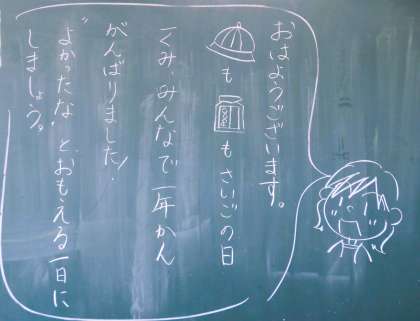 おはようございます。
も も さいごの日
くみ、みんなで 一年かん
がんばりました!
"よかったな"と、おもえる一日に
しましょう。